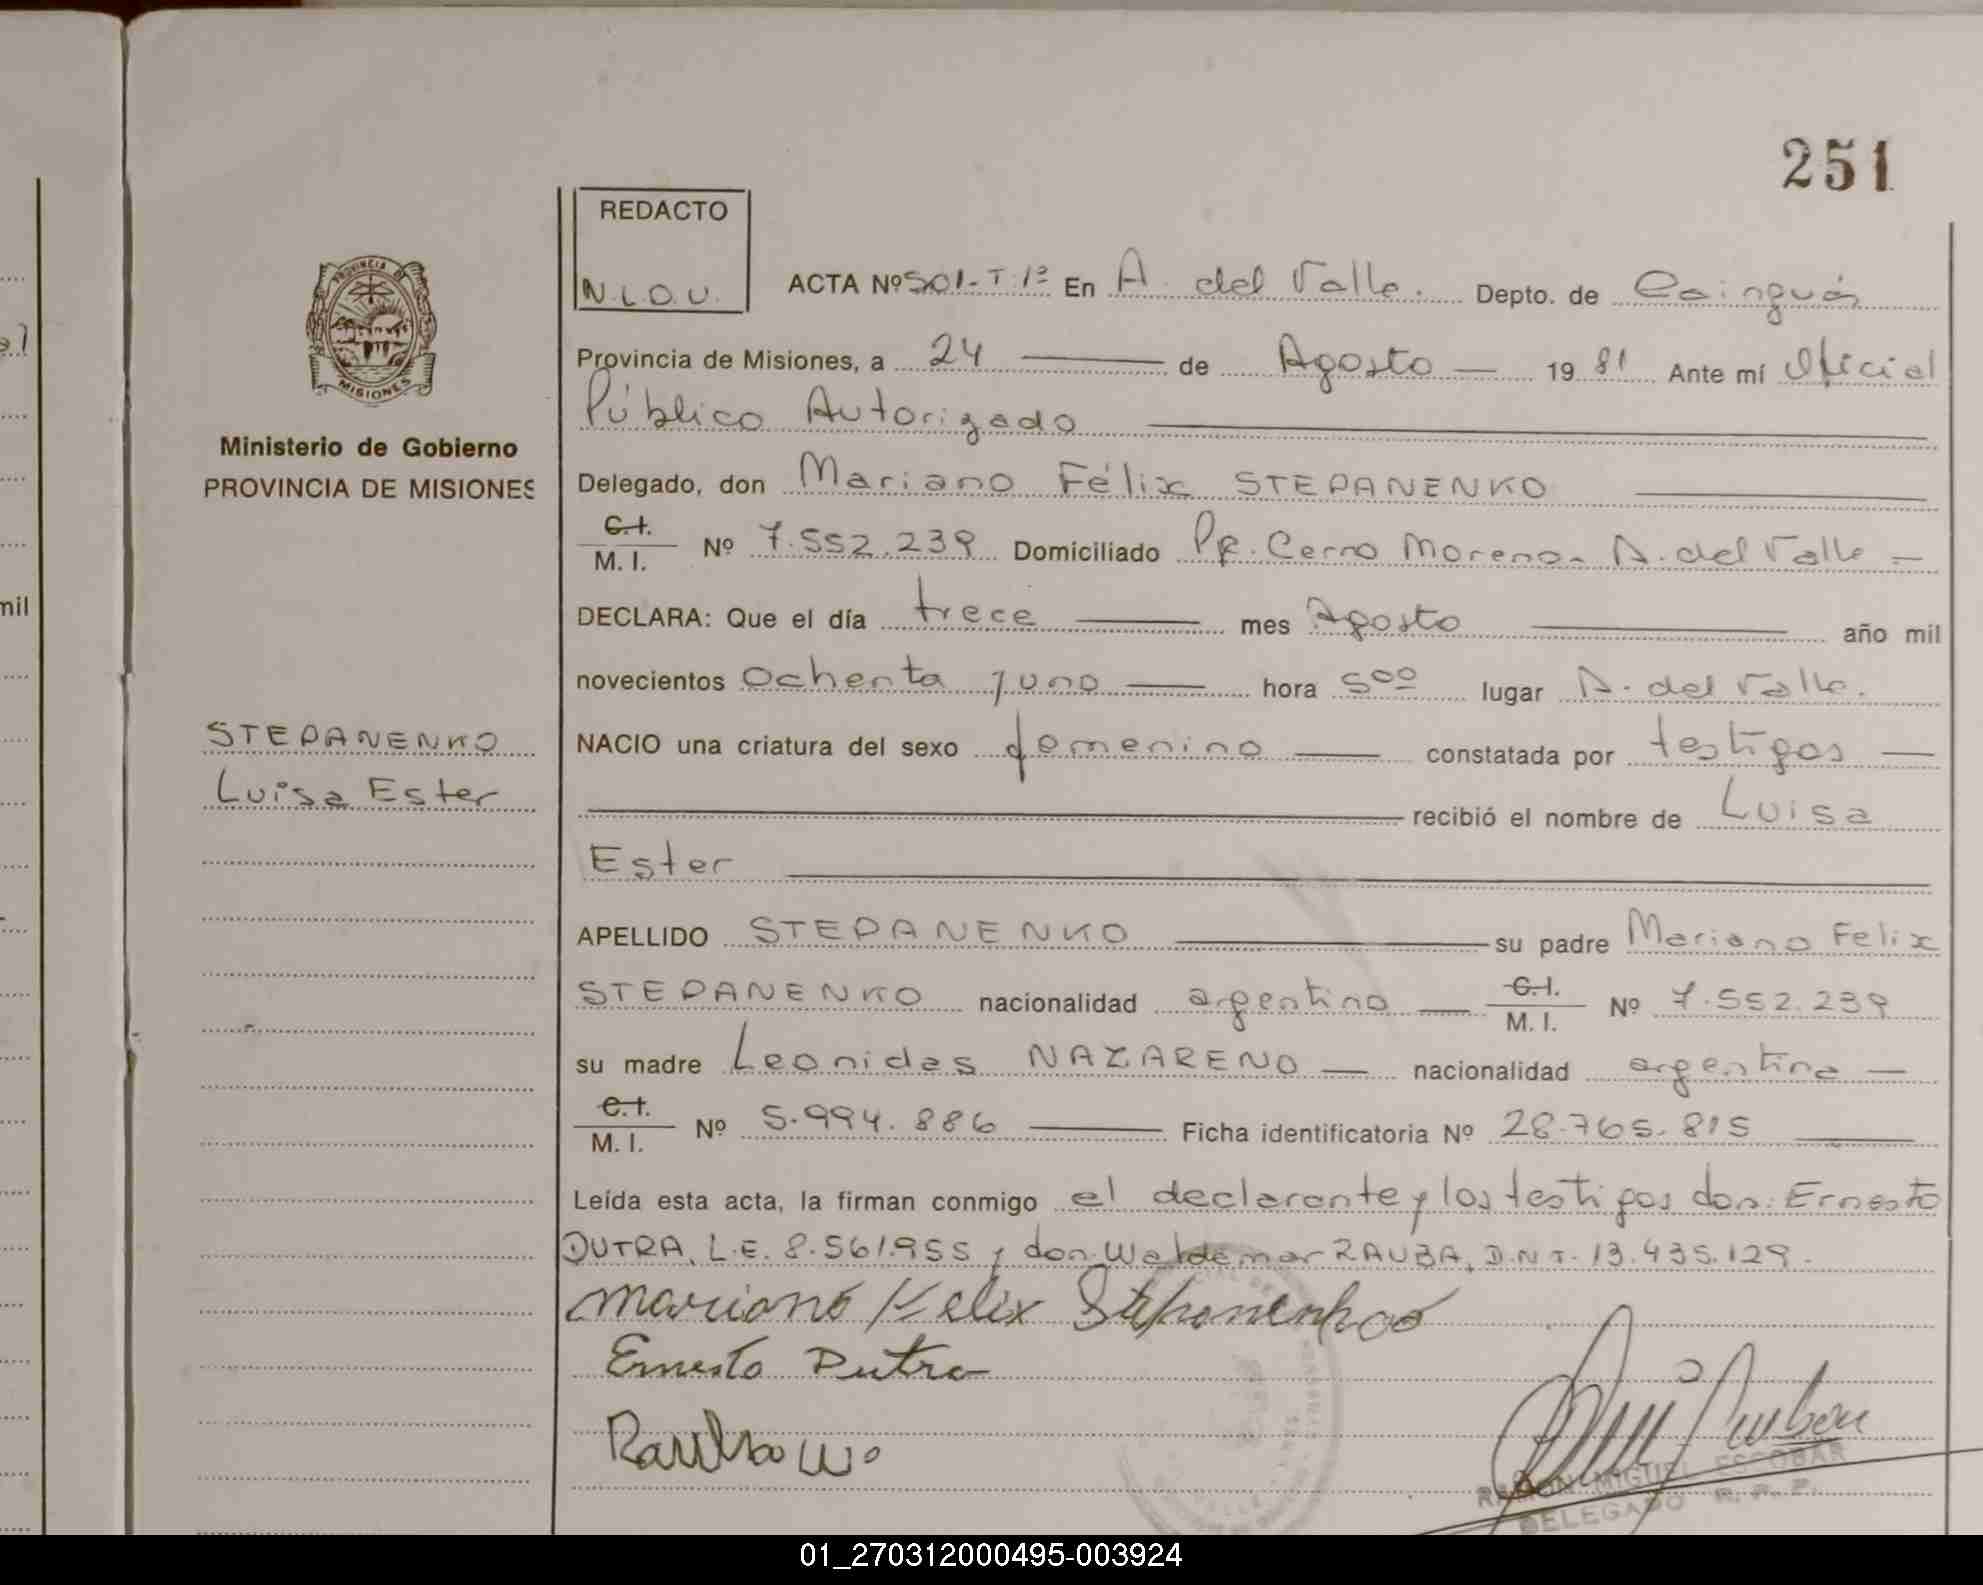 251
REDACTO
N.L.D.U.
ACTA Nº 501-T.1º En A. del Valle. Depto. de Cainguás
Provincia de Misiones, a 24 de Agosto 1981 Ante mí Oficial
Público Autorizado
Delegado, don Mariano Félix STEPANENKO
C.I. / M.I. Nº 7.552.239 Domiciliado Pje. Cerro Moreno - A. del Valle
DECLARA: Que el día trece mes Agosto año mil
novecientos ochenta y uno hora 5⁰⁰ lugar A. del Valle.
NACIO una criatura del sexo femenino constatada por testigos
recibió el nombre de Luisa
Ester
APELLIDO STEPANENKO su padre Mariano Felix
STEPANENKO nacionalidad argentino C.I. / M.I. Nº 7.552.239
su madre Leonidas NAZARENO nacionalidad argentina
C.I. / M.I. Nº 5.994.886 Ficha identificatoria Nº 28.765.815
Leída esta acta, la firman conmigo el declarante y los testigos don: Ernesto
DUTRA, L.E. 8.561.955 y don Waldemar RAUBA, D.N.I. 13.435.129.
Mariano Felix Stepanenko
Ernesto Dutra
RAMON MIGUEL ESCOBAR
DELEGADO R. P. P.
PROVINCIA DE
MISIONES
Ministerio de Gobierno
PROVINCIA DE MISIONES
STEPANENKO
Luisa Ester
mil
01_270312000495-003924